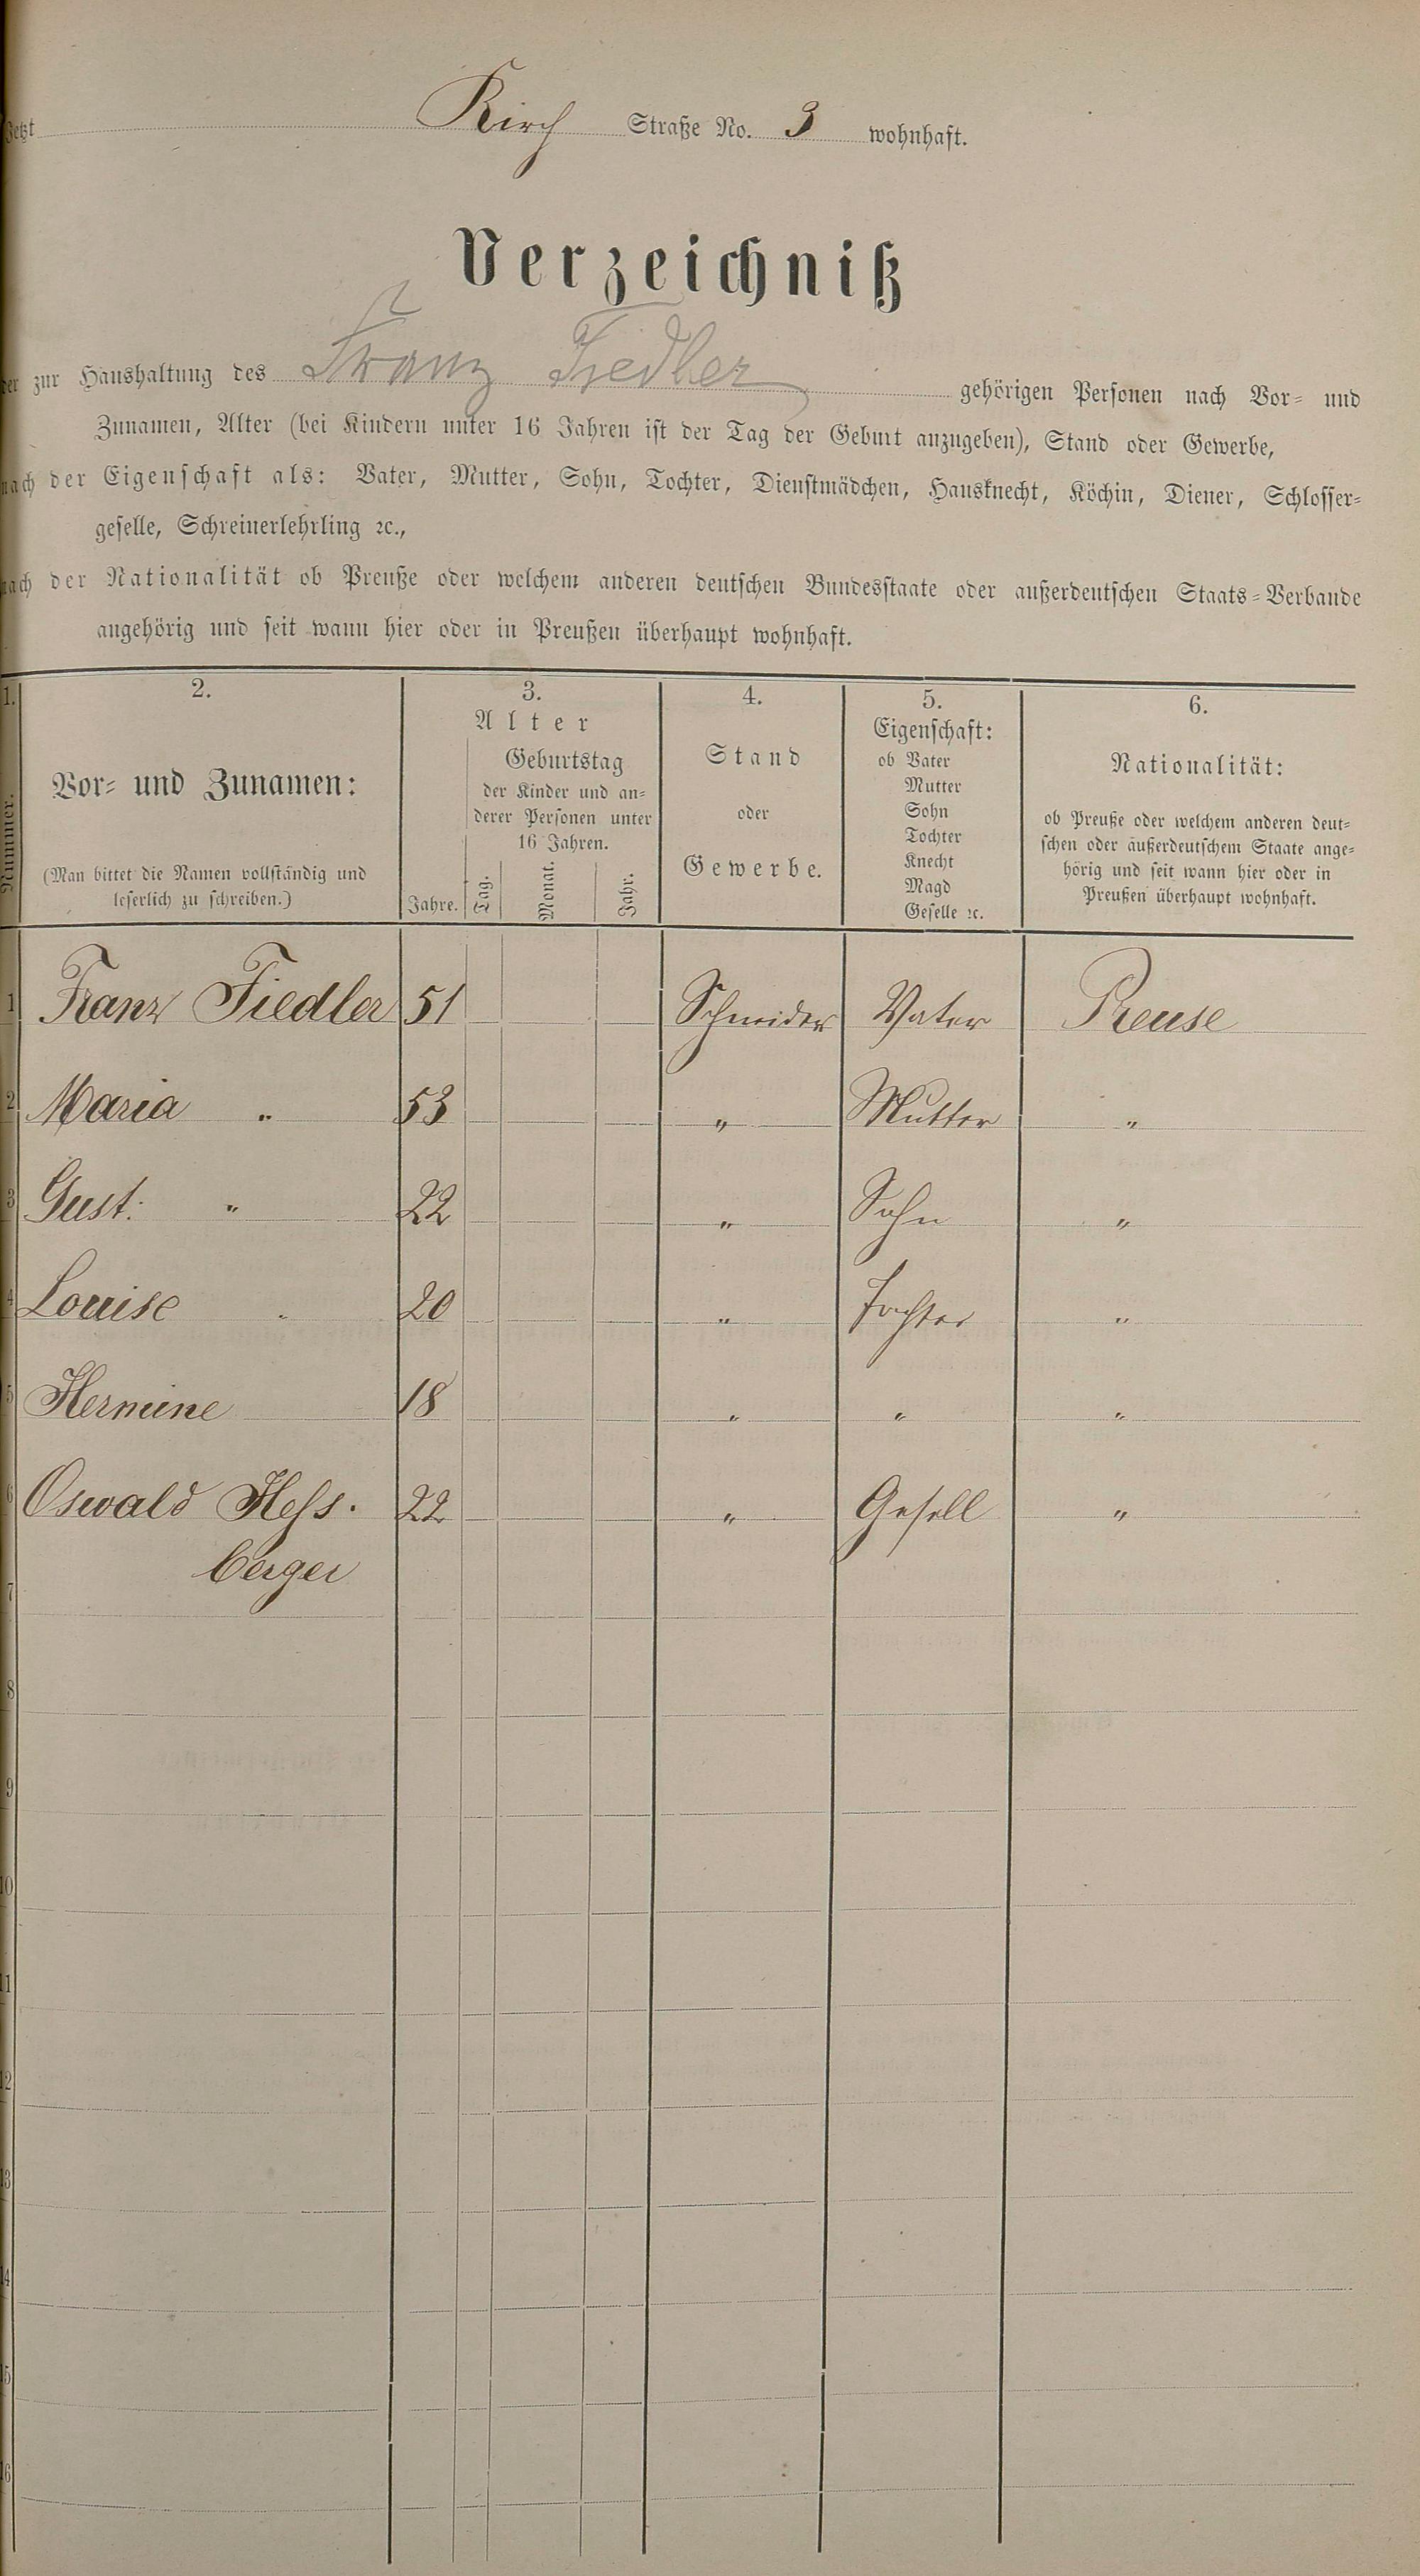 Jetzt Kirch Straße No. 3 wohnhaft.
Verzeichniß
der zur Haushaltung des Franz Fiedler gehörigen Personen nach Vor- und
Zunamen, Alter (bei Kindern unter 16 Jahren ist der Tag der Geburt anzugeben), Stand oder Gewerbe,
nach der Eigenschaft als: Vater, Mutter, Sohn, Tochter, Dienstmädchen, Hausknecht, Köchin, Diener, Schlosser-
geselle, Schreinerlehrling ꝛc.,
nach der Nationalität ob Preuße oder welchem anderen deutschen Bundesstaate oder außerdeutschen Staats-Verbande
angehörig und seit wann hier oder in Preußen überhaupt wohnhaft.
1.
Nummer.
2.
Vor- und Zunamen:
(Man bittet die Namen vollständig und
leserlich zu schreiben.)
3.
Alter
Jahre.
Geburtstag
der Kinder und an-
derer Personen unter
16 Jahren.
Tag. Monat. Jahr.
4.
Stand
oder
Gewerbe.
5.
Eigenschaft:
ob Vater
Mutter
Sohn
Tochter
Knecht
Magd
Geselle ꝛc.
6.
Nationalität:
ob Preuße oder welchem anderen deut-
schen oder äußerdeutschem Staate ange-
hörig und seit wann hier oder in
Preußen überhaupt wohnhaft.
1 Franz Fiedler 51 Schneider Vater Preuse
2 Maria " 53 " Mutter "
3 Gust: " 22 " Sohn "
4 Louise " 20 " Tochter "
5 Hermine 18 " " "
6 Oswald Hess. 22 " Gesell "
berger
7
8
9
10
11
12
13
14
15
16